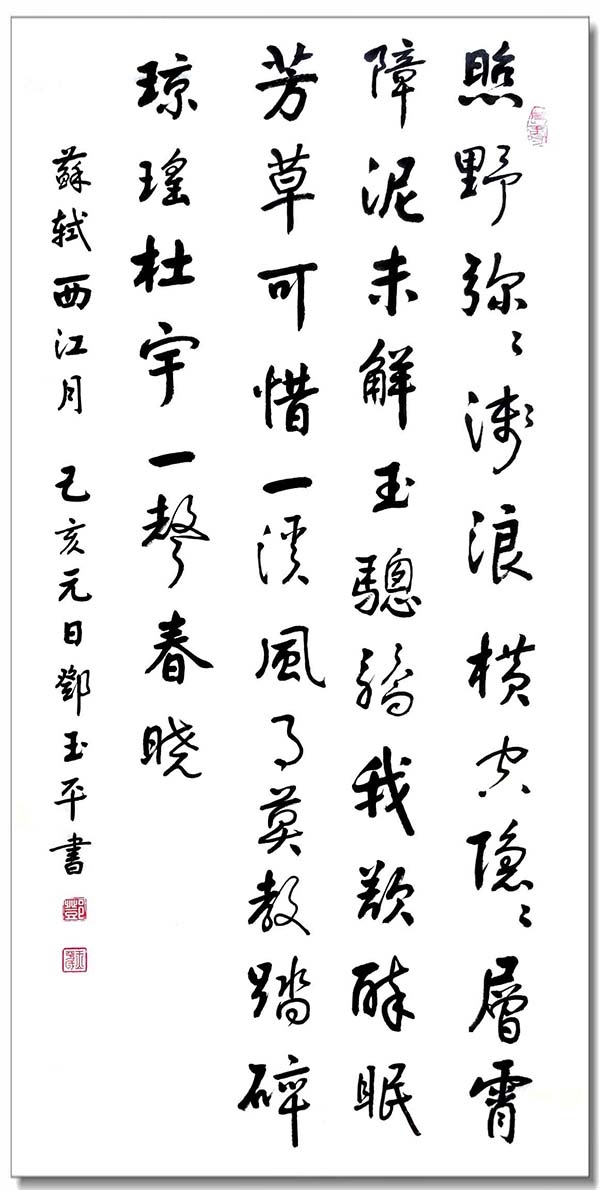 照野弥〻淺浪横空隐〻層霄
障泥未解玉驄驕我欲醉眠
芳草可惜一溪風月莫教踏碎
琼瑶杜宇一聲春晓
蘇轼西江月 己亥元日鄧玉平書